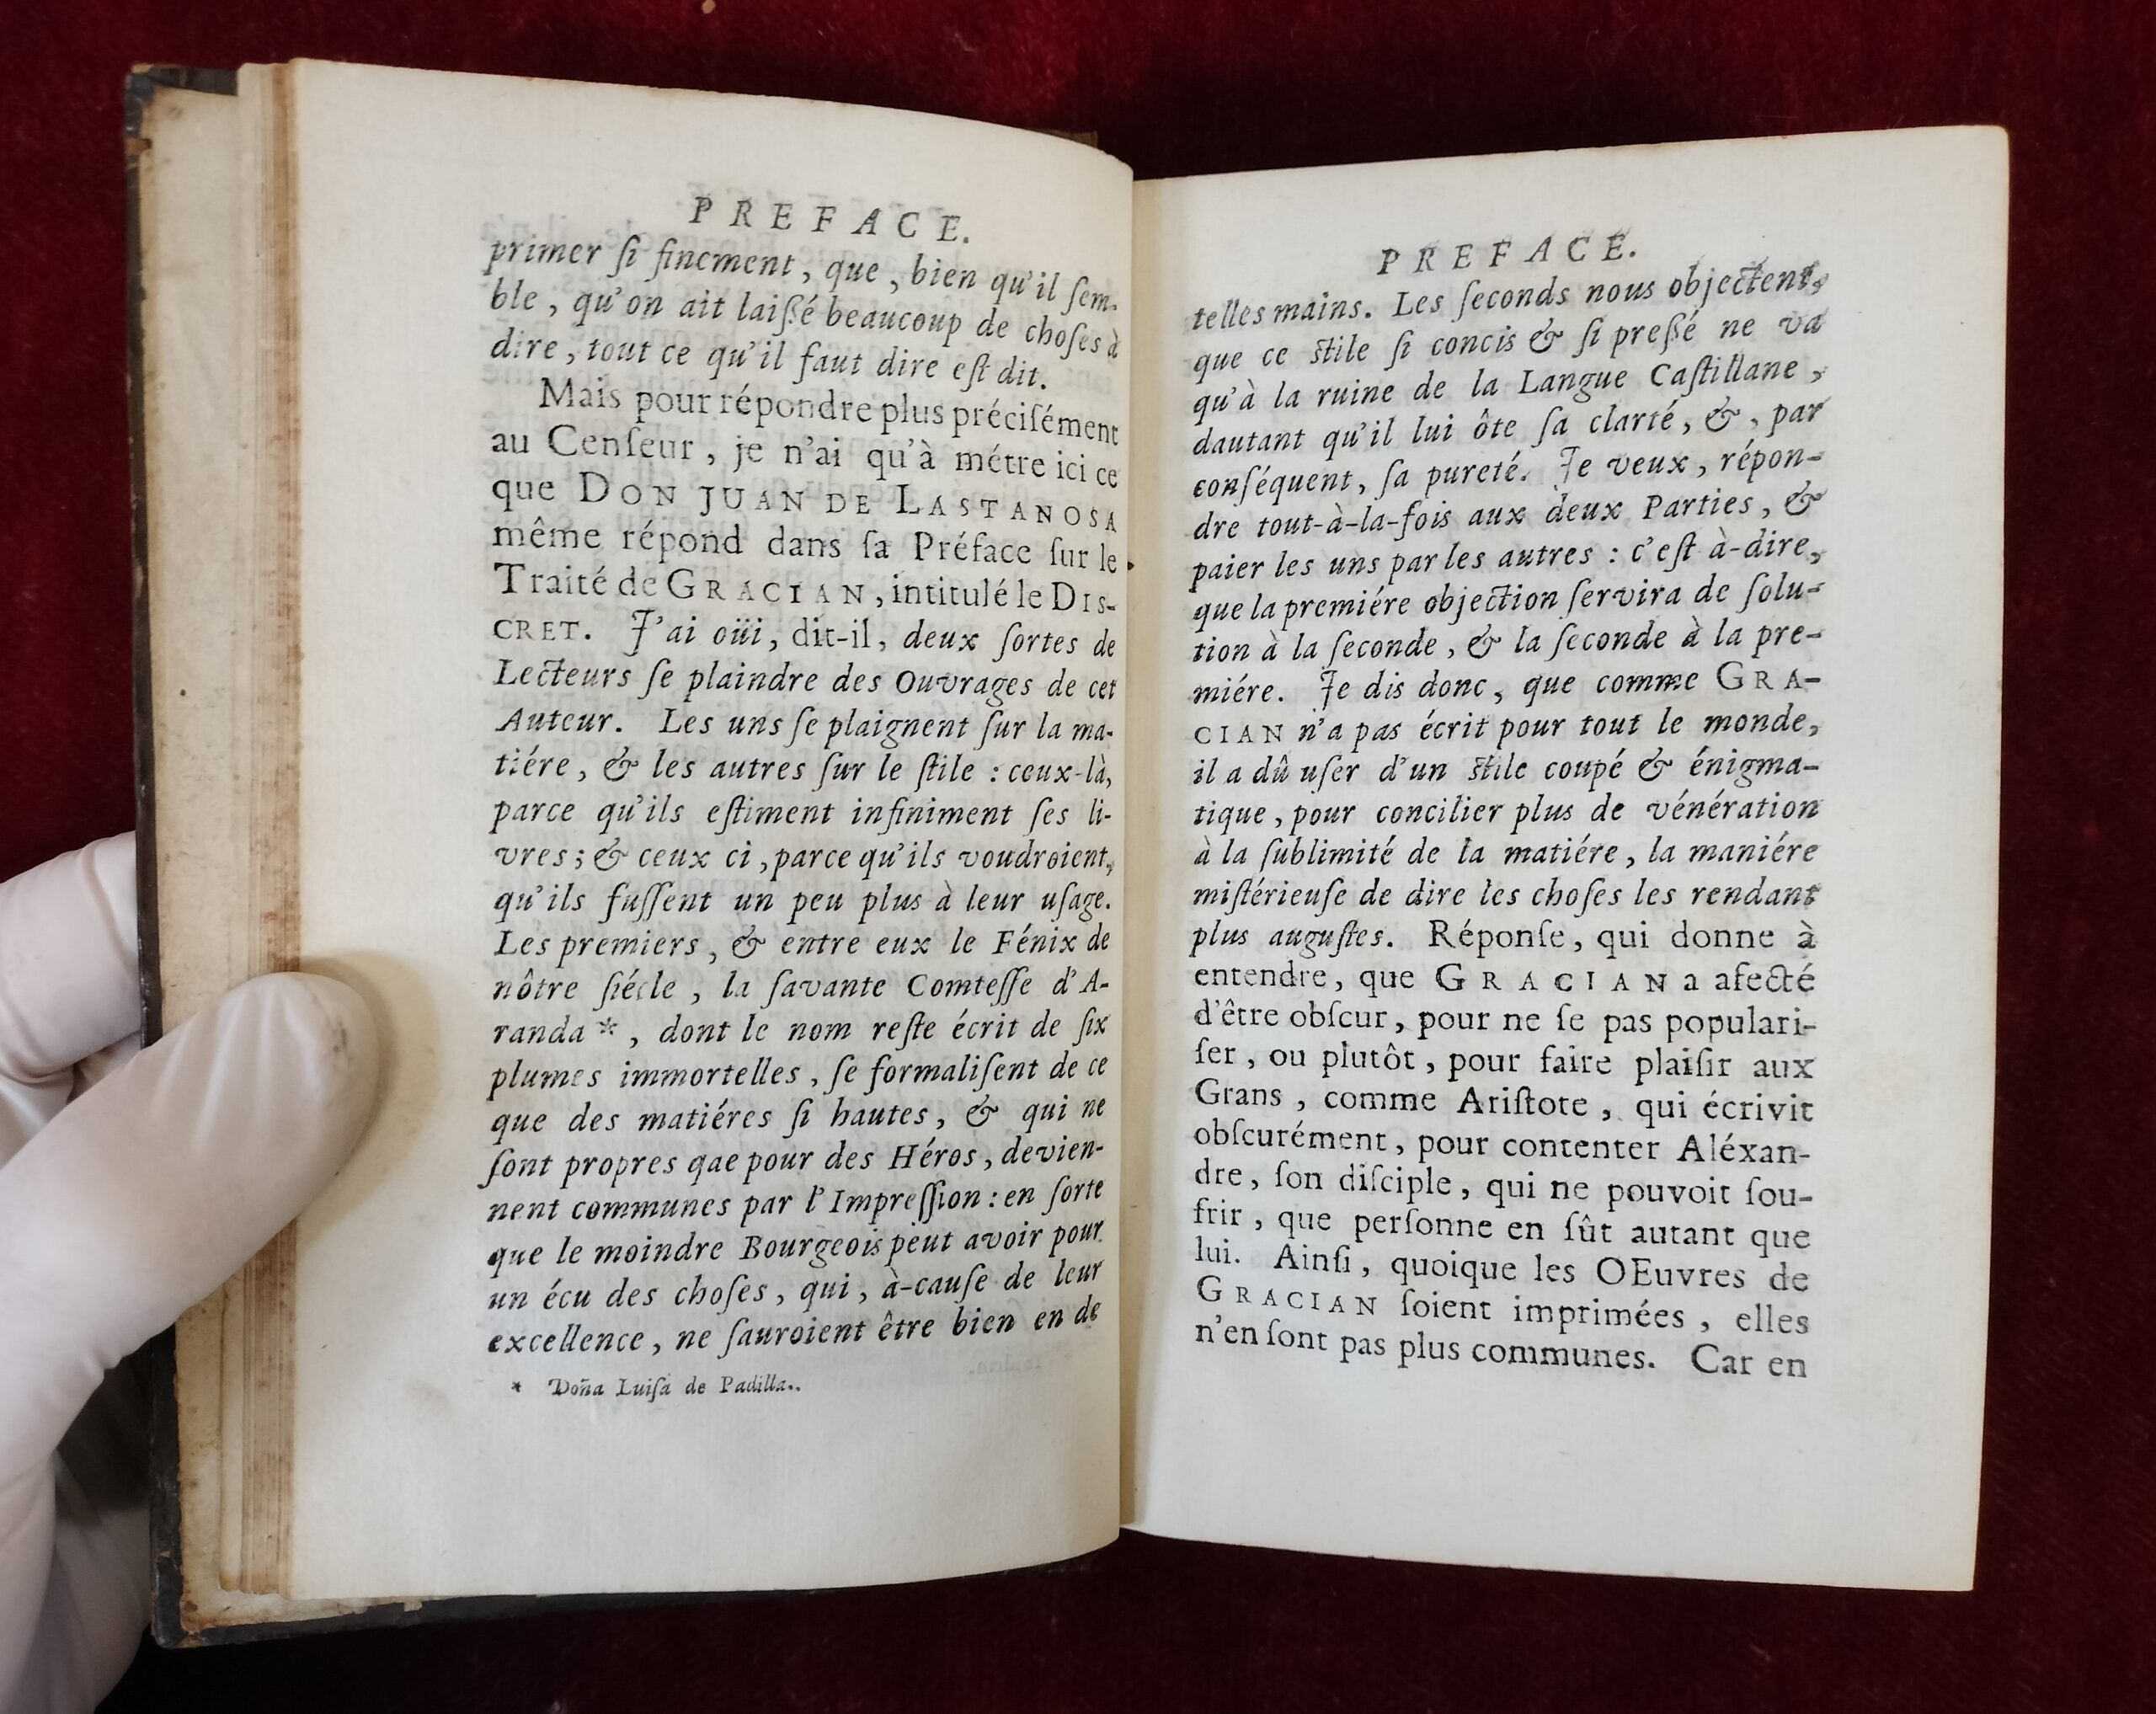 PREFACE.
primer ſi finement, que, bien qu'il ſem-
ble, qu'on ait laiſſé beaucoup de choſes à
dire, tout ce qu'il faut dire eſt dit.
Mais pour répondre plus préciſément
au Cenſeur, je n'ai qu'à métre ici ce
que DON JUAN DE LASTANOSA
même répond dans ſa Préface ſur le
Traité de GRACIAN, intitulé le DIS-
CRET. J'ai oüi, dit-il, deux ſortes de
Lecteurs ſe plaindre des Ouvrages de cet
Auteur. Les uns ſe plaignent ſur la ma-
tiére, & les autres ſur le ſtile : ceux-là,
parce qu'ils eſtiment infiniment ſes li-
vres; & ceux ci, parce qu'ils voudroient,
qu'ils fuſſent un peu plus à leur uſage.
Les premiers, & entre eux le Fénix de
nôtre ſiécle, la ſavante Comteſſe d'A-
randa *, dont le nom reſte écrit de ſix
plumes immortelles, ſe formaliſent de ce
que des matiéres ſi hautes, & qui ne
ſont propres qae pour des Héros, devien-
nent communes par l'Impreſſion : en ſorte
que le moindre Bourgeois peut avoir pour
un écu des choſes, qui, à-cauſe de leur
excellence, ne ſauroient être bien en de
* Doña Luiſa de Padilla..
PREFACE.
telles mains. Les ſeconds nous objectent,
que ce ſtile ſi concis & ſi preſſé ne va
qu'à la ruine de la Langue Caſtillane,
dautant qu'il lui ôte ſa clarté, &, par
conſéquent, ſa pureté. Je veux, répon-
dre tout-à-la-fois aux deux Parties, &
paier les uns par les autres : c'eſt à-dire,
que la premiére objection ſervira de ſolu-
tion à la ſeconde, & la ſeconde à la pre-
miére. Je dis donc, que comme GRA-
CIAN n'a pas écrit pour tout le monde,
il a dû uſer d'un ſtile coupé & énigma-
tique, pour concilier plus de vénération
à la ſublimité de la matiére, la maniére
miſtérieuſe de dire les choſes les rendant
plus auguſtes. Réponſe, qui donne à
entendre, que GRACIAN a afecté
d'être obſcur, pour ne ſe pas populari-
ſer, ou plutôt, pour faire plaiſir aux
Grans, comme Ariſtote, qui écrivit
obſcurément, pour contenter Aléxan-
dre, ſon diſciple, qui ne pouvoit ſou-
frir, que perſonne en ſût autant que
lui. Ainſi, quoique les OEuvres de
GRACIAN ſoient imprimées, elles
n'en ſont pas plus communes. Car en